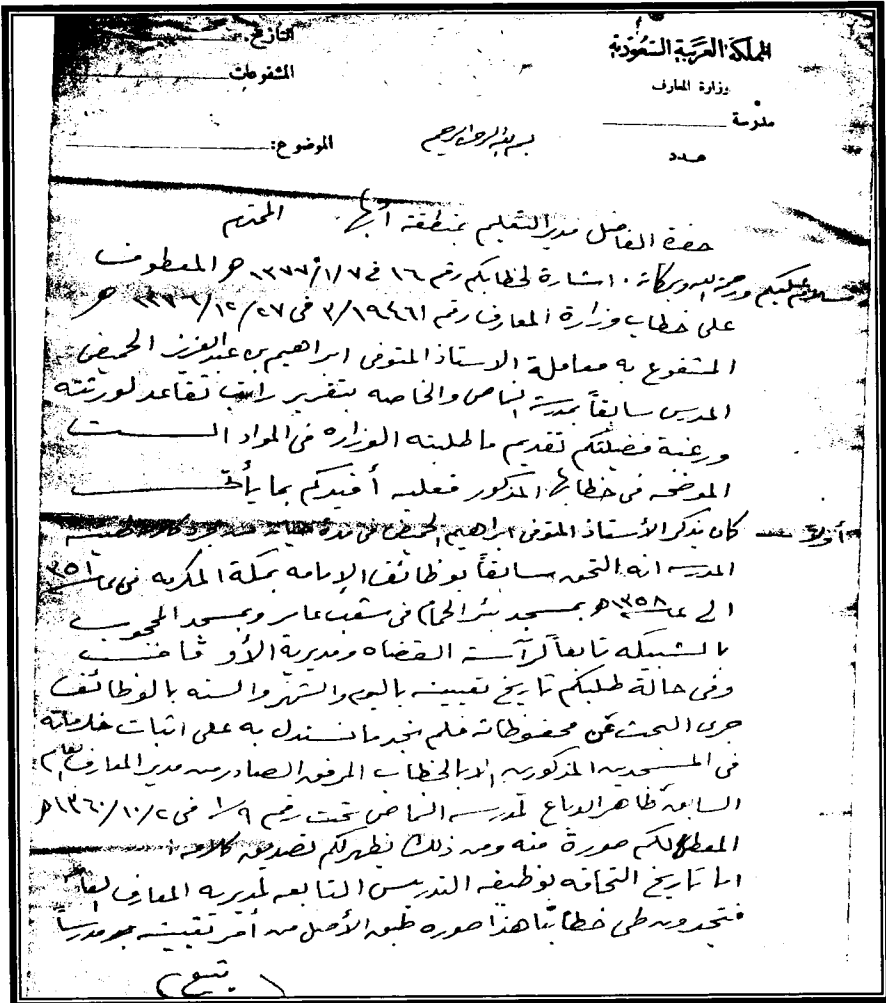 المملكة العربية السعودية
وزارة المعارف
مدرسة
عدد
التاريخ:
المشفوعات
الموضوع:
بسم الله الرحمن الرحيم
حضرة الفاضل مدير التعليم بمنطقة أبها المحترم
السلام عليكم ورحمة الله وبركاته. اشارة لخطابكم رقم ١٦ في ١٣٧٧/١/٧ هـ المعطوف
على خطاب وزارة المعارف رقم ٣/١٩٤٦١ في ١٣٧٦/١٢/٢٧ هـ
المشفوع به معاملة الاستاذ المتوفى ابراهيم بن عبد العزيز الحميضي
المدرس سابقاً بمدرسة النماص والخاصه بتقرير راتب تقاعد لورثته
ورغبة فضيلتكم تقديم ما طلبته الوزاره في المواد الست
الموضحه في خطابها المذكور فعليه أفيدكم بما يأتي
أولاً - كان يذكر الأستاذ المتوفى ابراهيم الحميضي في مدة حياته
المدرسه انه التحق سابقاً بوظائف الإمامه بمكة المكرمه في عام ١٣٥١
الى عام ١٣٥٨هـ بمسجد بئر الحمام في شعب عامر وبمسجد المحجوب
بالشبيكه تابعاً لرآسة القضاه ومديرية الأوقاف
وفي حالة طلبكم تاريخ تعيينه باليوم والشهر والسنه بالوظائف
جرى البحث عن محفوظاته فلم نجد ما نستدل به على اثبات خدماته
في المسجدين المذكورين الا بالخطاب المرفق الصادر من مدير المعارف العام
السابق طاهر الدباغ لمدرسه النماص تحت رقم ١/٩ في ١٣٦٠/١٠/٢هـ
المعطى لكم صورة منه ومن ذلك يظهر لكم تصديق كلامه
اما تاريخ التحاقه بوظيفه التدريس التابعه لمديريه المعارف العامه
فتجدون طى خطابنا هذا صوره طبق الأصل من أمر تعيينه مدرساً
(يتبع)